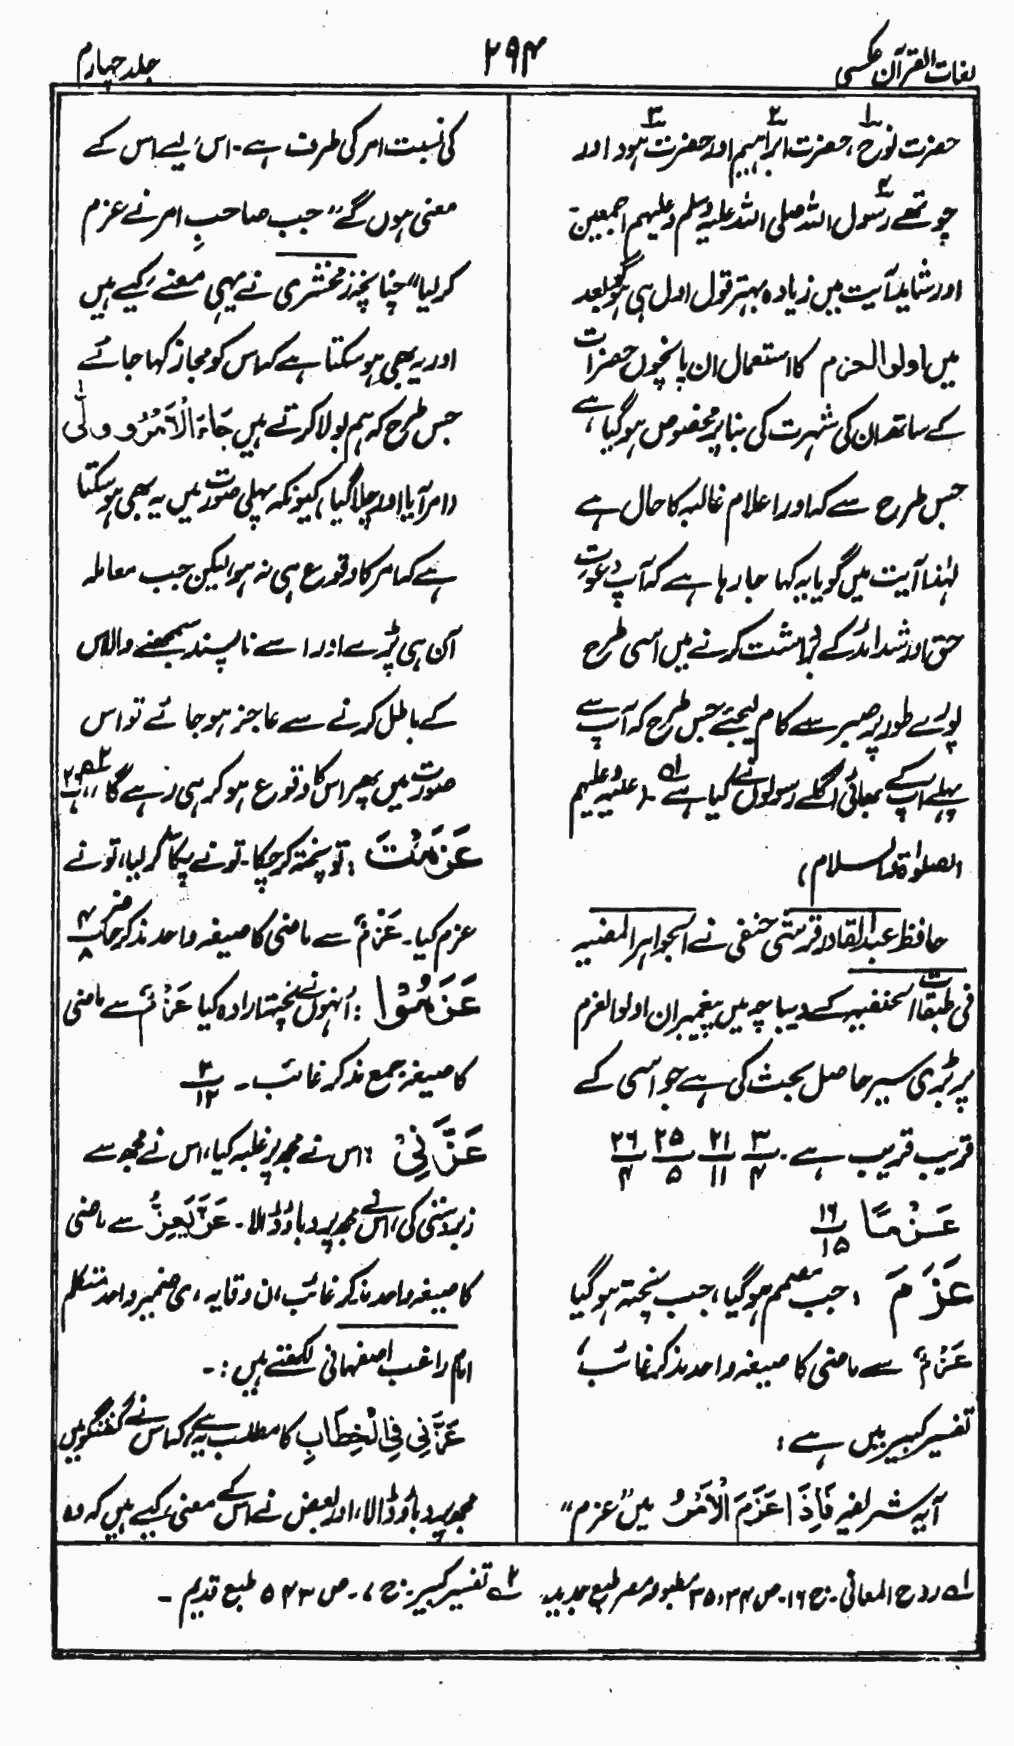 لغات القرآن عکسی
۲۹۴
جلد چہارم
حضرت نوح، حضرت ابراہیم اور حضرت ہود اور
چوتھے رسول اللہ صلی اللہ علیہ وسلم وعلیہم اجمعین
اور شاید آیت میں زیادہ بہتر قول اول ہی ہو گو بعد
میں اولوا العزم کا استعمال ان پانچوں حضرات
کے ساتھ ان کی شہرت کی بنا پر مخصوص ہو گیا ہے،
جس طرح سے کہ اور اعلام غالبہ کا حال ہے
لہٰذا آیت میں گویا یہ کہا جا رہا ہے کہ آپ دعوت
حق اور شدائد کے برداشت کرنے میں اسی طرح
پورے طور پر صبر سے کام لیجئے جس طرح کہ آپ سے
پہلے آپ کے بھائی اگلے رسولوں نے کیا ہے ۔ (علیہ وعلیہم
الصلوٰۃ والسلام)
حافظ عبد القادر قرشی حنفی نے الجواہر المضیہ
فی طبقات الحنفیہ کے دیباچہ میں پیغمبران اولو العزم
پر بڑی سیر حاصل بحث کی ہے جو اسی کے
قریب قریب ہے ۔ ۳/۴ ۲۱/۱۱ ۲۵/۵ ۲۶/۴
عَزْمًا ۱۶/۱۵
عَزَمَ : جب مصمم ہو گیا، جب پختہ ہو گیا
عَزْمٌ سے ماضی کا صیغہ واحد مذکر غائب،
تفسیر کبیر میں ہے :
آیہ شریفہ فَاِذَا عَزَمَ الْاَمْرُ میں "عزم"
کی نسبت امر کی طرف ہے ۔ اس لیے اس کے
معنی ہوں گے "جب صاحبِ امر نے عزم
کر لیا" چنانچہ زمخشری نے یہی معنے کیے ہیں
اور یہ بھی ہو سکتا ہے کہ اس کو مجاز کہا جائے
جس طرح کہ ہم بولا کرتے ہیں جَاءَ الْاَمْرُ و ولّٰی
(امر آیا اور چلا گیا) کیونکہ پہلی صورت میں یہ بھی ہو سکتا
ہے کہ امر کا وقوع ہی نہ ہو لیکن جب معاملہ
آن ہی پڑے اور اسے ناپسند سمجھنے والا اس
کے باطل کرنے سے عاجز ہو جائے تو اس
صورت میں پھر اس کا وقوع ہو کر ہی رہے گا"
عَزَمْتَ : تو پختہ کر چکا ۔ تو نے پکا کر لیا، تو نے
عزم کیا ۔ عَزْمٌ سے ماضی کا صیغہ واحد مذکر حاضر ۴/۸
عَزَمُوْا : اُنہوں نے پختہ ارادہ کیا عَزْمٌ سے ماضی
کا صیغہ جمع مذکر غائب ۔ ۲/۱۲
عَزَّنِیْ : اس نے مجھ پر غلبہ کیا، اس نے مجھ سے
زبردستی کی، اس نے مجھ پر دباؤ ڈالا ۔ عَزَّ یَعِزُّ سے ماضی
کا صیغہ واحد مذکر غائب، ن وقایہ، ی ضمیر واحد متکلم
امام راغب اصفہانی لکھتے ہیں :-
عَزَّنِی فِی الْخِطَابِ کا مطلب یہ ہے کہ اس نے گفتگو میں
مجھ پر دباؤ ڈالا، اور بعض نے اس کے معنی کیے ہیں کہ وہ
لہ روح المعانی ۔ ج ۱۶ ۔ ص ۳۴، ۳۵ مطبوعہ مصر طبع جدید ۔ ۲ہ تفسیر کبیر ۔ ج ۷ ۔ ص ۵۴۳ طبع قدیم ۔